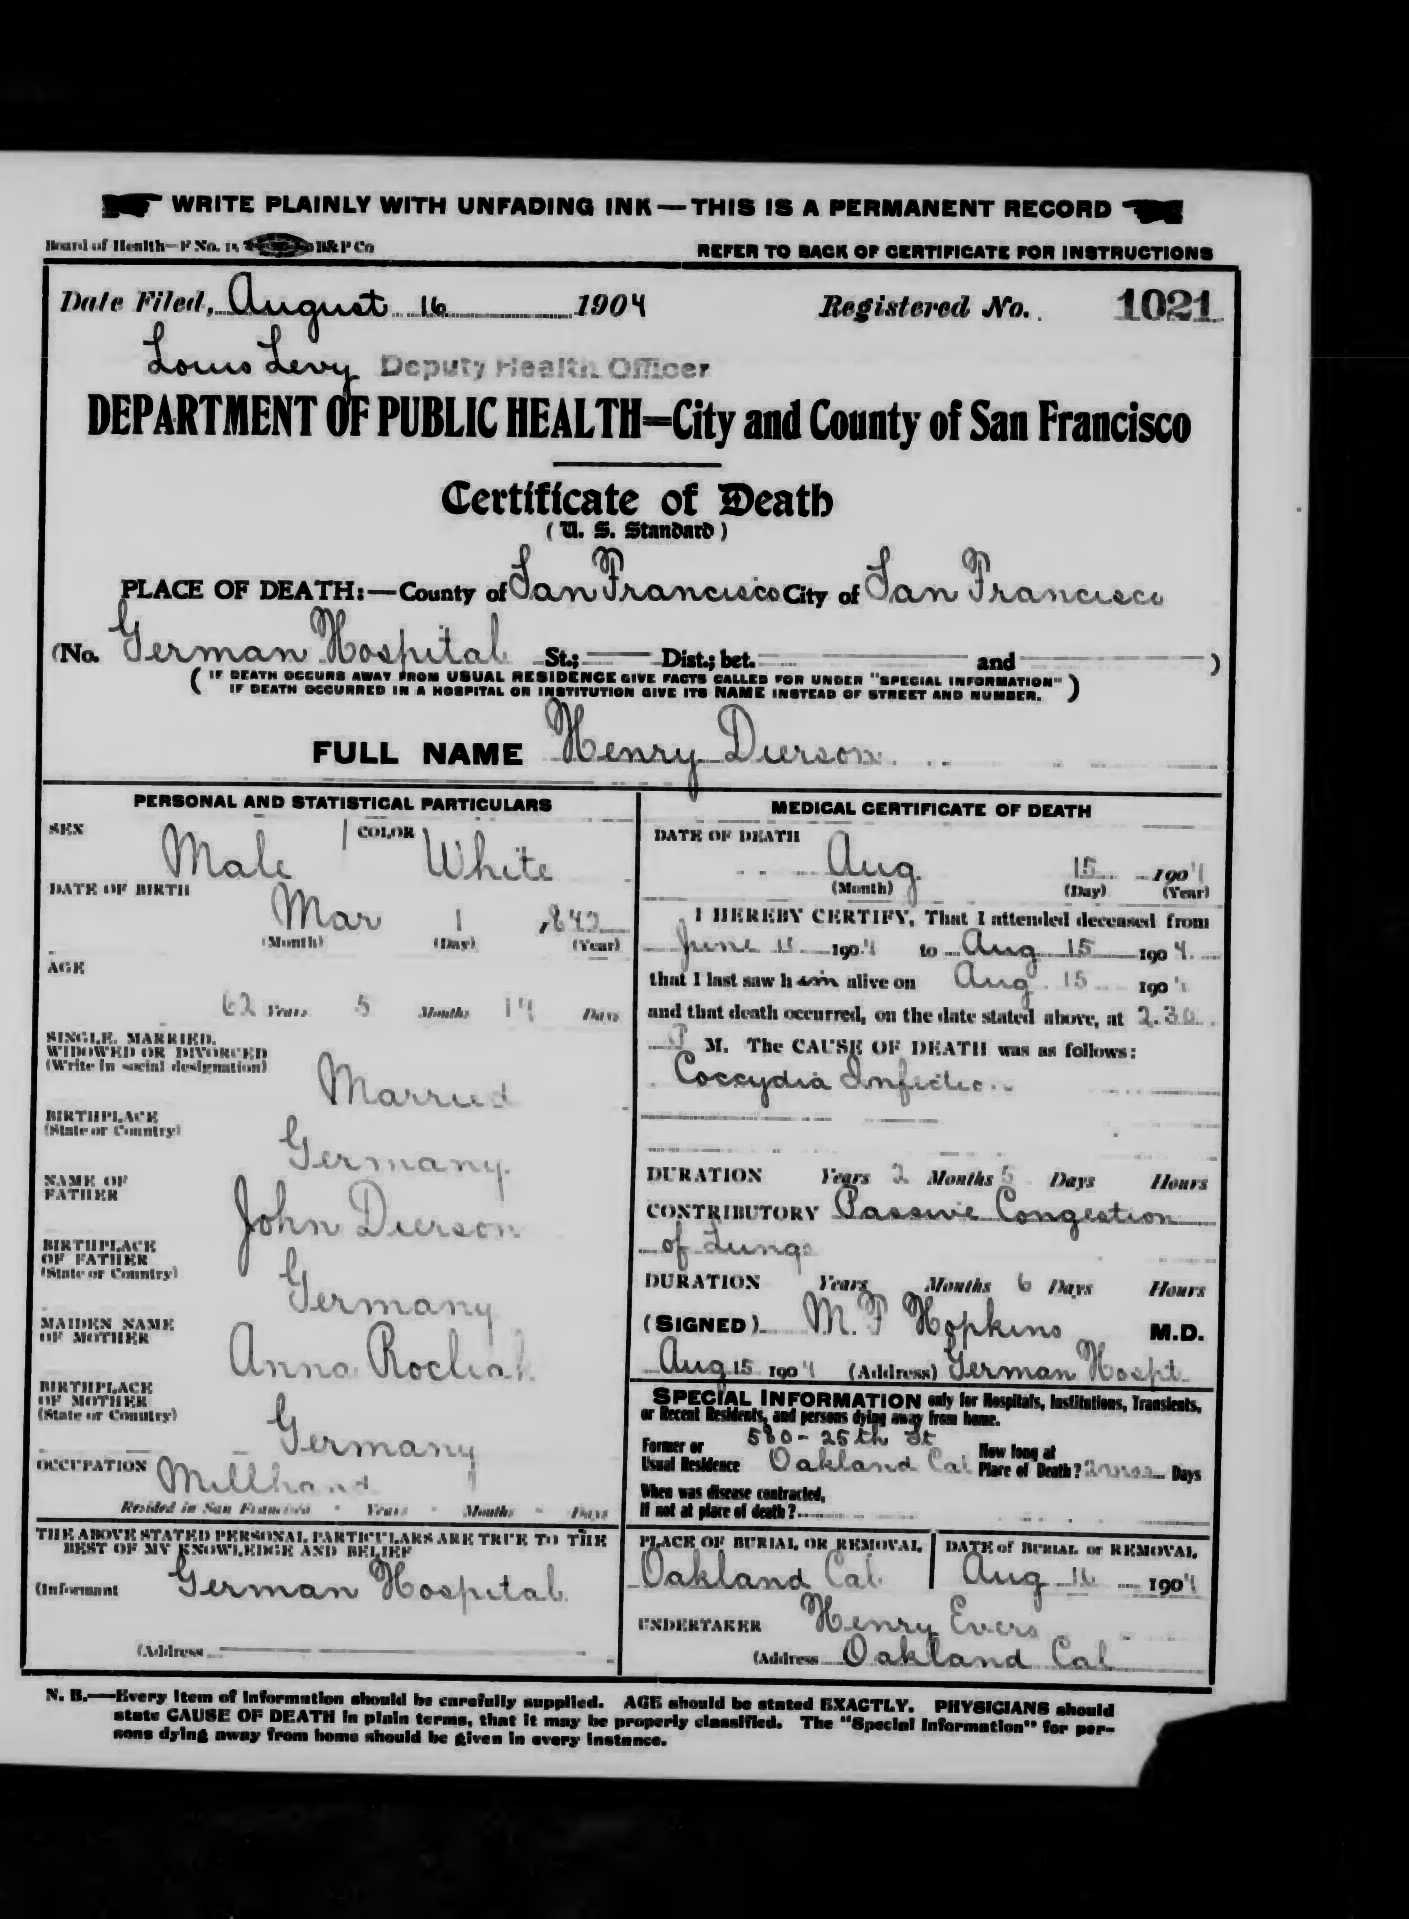 WRITE PLAINLY WITH UNFADING INK — THIS IS A PERMANENT RECORD
Board of Health—F No. 15 B&P Co
REFER TO BACK OF CERTIFICATE FOR INSTRUCTIONS
Date Filed, August 16 1904 Registered No. 1021
Louis Levy Deputy Health Officer
DEPARTMENT OF PUBLIC HEALTH=City and County of San Francisco
Certificate of Death
(U. S. Standard)
PLACE OF DEATH:—County of San Francisco City of San Francisco
(No. German Hospital St.; Dist.; bet. and )
(IF DEATH OCCURS AWAY FROM USUAL RESIDENCE GIVE FACTS CALLED FOR UNDER "SPECIAL INFORMATION"
IF DEATH OCCURRED IN A HOSPITAL OR INSTITUTION GIVE ITS NAME INSTEAD OF STREET AND NUMBER.)
FULL NAME Henry Dierson
PERSONAL AND STATISTICAL PARTICULARS
SEX Male COLOR White
DATE OF BIRTH
Mar 1 , 842
(Month) (Day) (Year)
AGE
62 Years 5 Months 14 Days
SINGLE, MARRIED,
WIDOWED OR DIVORCED
(Write in social designation)
Married
BIRTHPLACE
(State or Country)
Germany
NAME OF
FATHER
John Dierson
BIRTHPLACE
OF FATHER
(State or Country)
Germany
MAIDEN NAME
OF MOTHER
Anna
BIRTHPLACE
OF MOTHER
(State or Country)
Germany
OCCUPATION Millhand
Resided in San Francisco - Years - Months - Days
THE ABOVE STATED PERSONAL PARTICULARS ARE TRUE TO THE
BEST OF MY KNOWLEDGE AND BELIEF
(Informant German Hospital
(Address
MEDICAL CERTIFICATE OF DEATH
DATE OF DEATH
Aug 15 1904
(Month) (Day) (Year)
I HEREBY CERTIFY, That I attended deceased from
June 11 1904 to Aug 15 1904
that I last saw h im alive on Aug 15 190
and that death occurred, on the date stated above, at 2.30
P M. The CAUSE OF DEATH was as follows:
Coccydia Infection
DURATION Years 2 Months 5 Days Hours
CONTRIBUTORY Passive Congestion
of Lungs
DURATION Years Months 6 Days Hours
(SIGNED) M. F Hopkins M.D.
Aug 15 1904 (Address) German Hospt
SPECIAL INFORMATION only for Hospitals, Institutions, Transients,
or Recent Residents, and persons dying away from home.
580 - 25th St
Former or Usual Residence Oakland Cal How long at Place of Death? 2 mos Days
When was disease contracted,
if not at place of death?
PLACE OF BURIAL OR REMOVAL DATE of BURIAL or REMOVAL
Oakland Cal Aug 16 1904
UNDERTAKER Henry Evers
(Address Oakland Cal
N. B.—Every item of information should be carefully supplied. AGE should be stated EXACTLY. PHYSICIANS should
state CAUSE OF DEATH in plain terms, that it may be properly classified. The "Special Information" for per-
sons dying away from home should be given in every instance.